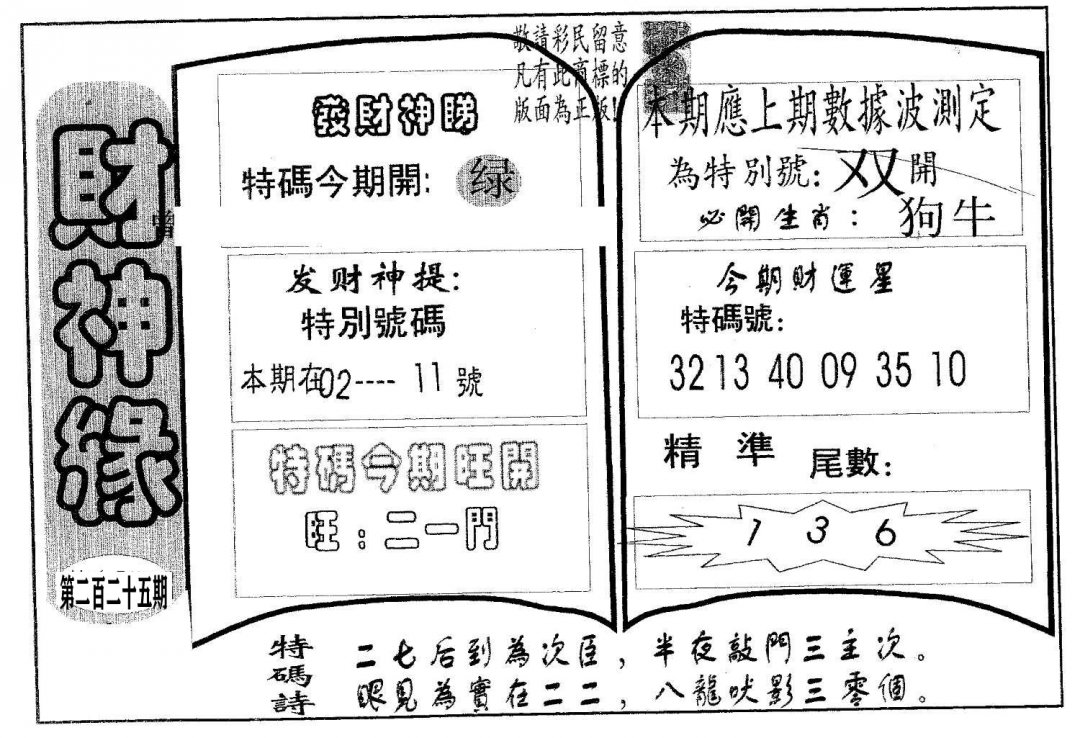 財神緣
第二百二十五期
敬請彩民留意
凡有此商標的
版面為正版!
發財神睇
特碼今期開: 绿
发财神提:
特別號碼
本期在02---- 11 號
特碼今期旺開
旺:二一門
本期應上期數據波測定
為特別號: 双 開
必開生肖: 狗牛
今期財運星
特碼號:
32 13 40 09 35 10
精 準 尾數:
1 3 6
特碼詩
二七后到為次臣,半夜敲門三主次。
眼見為實在二二,八龍吠影三零個。